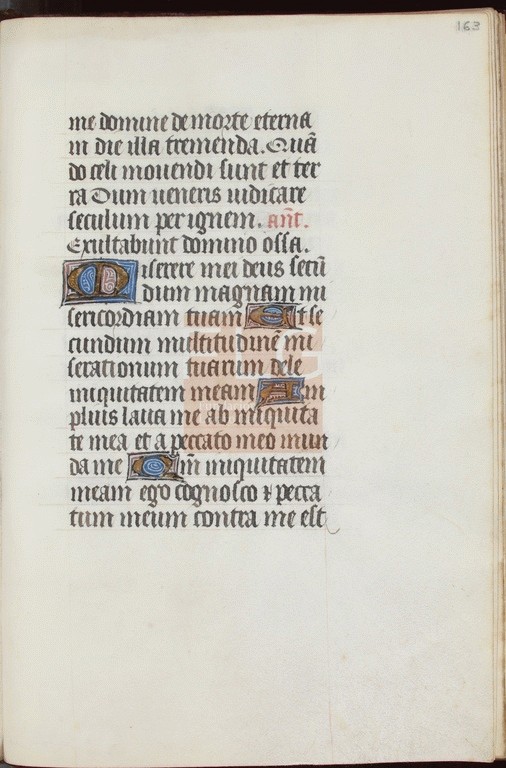 163
me domine de morte eterna
in die illa tremenda. Quā
do celi mouendi sunt et ter
ra Dum ueneris iudicare
seculum per ignem. ant̄.
Exultabunt domino ossa.
Miserere mei deus secū
dum magnam mi
sericordiam tuam Et se
cundum multitudinē mi
serationum tuarum dele
iniquitatem meam Am
plius laua me ab iniquita
te mea et a peccato meo mun
da me Qm̄ iniquitatem
meam ego cognosco ⁊ pecca
tum meum contra me est